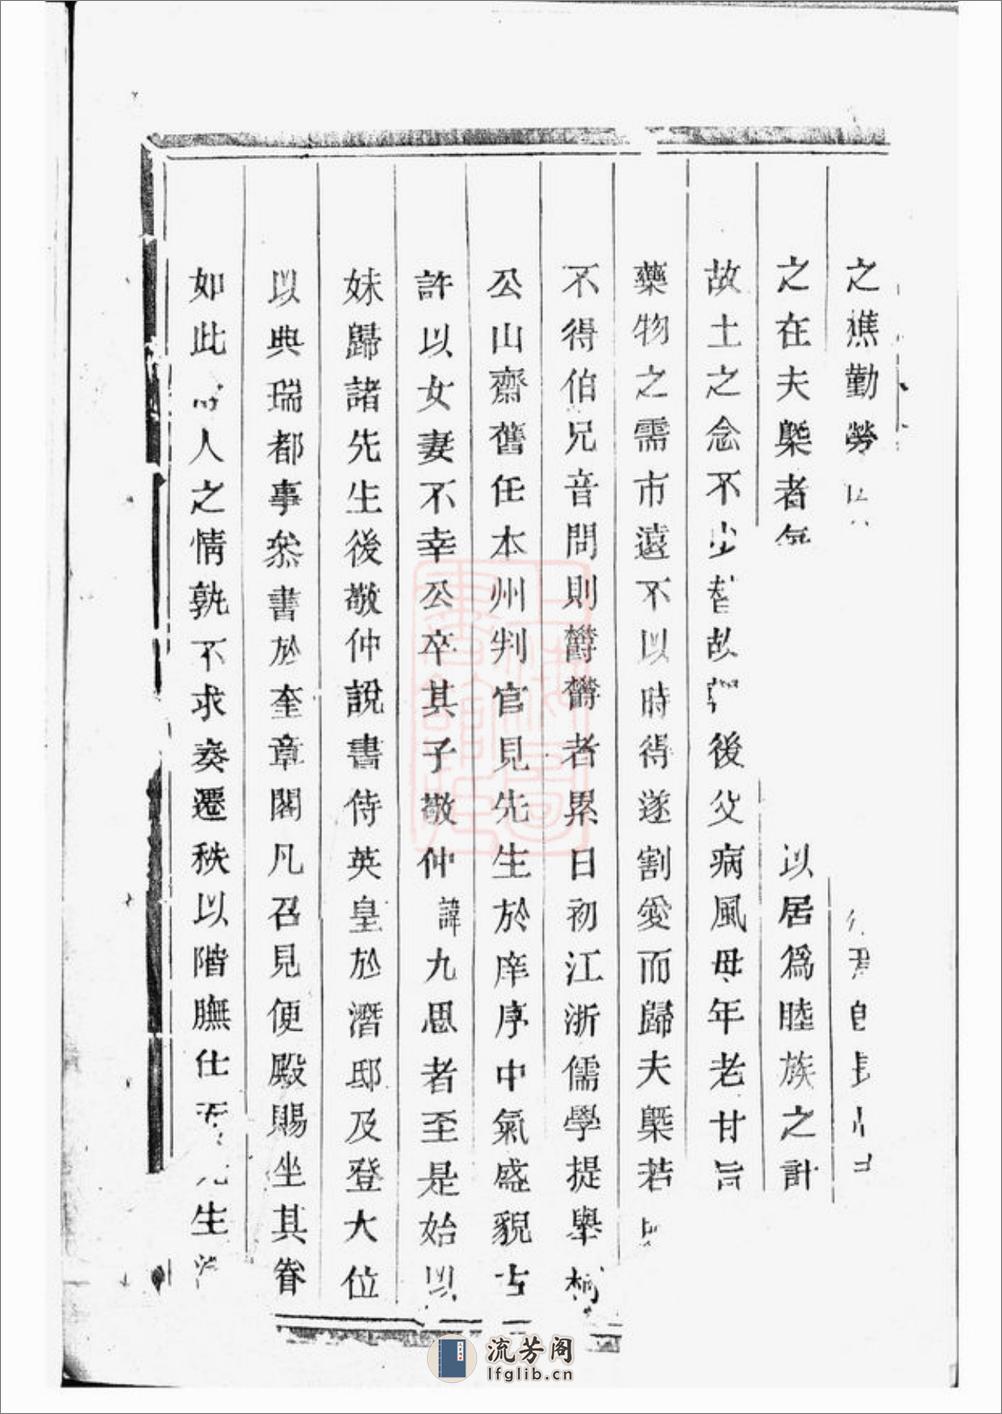 之譙勤勞
之在夫槩者 以居爲睦族之計
故土之念不少 故 後父病風母年老甘旨
藥物之需市遠不以時得遂割愛而歸夫槩若
不得伯兄音問則欝欝者累日初江浙儒學提舉柯
公山齋舊任本州判官見先生於庠序中氣盛貌古
許以女妻不幸公卒其子敬仲諱九思者至是始以
妹歸諸先生後敬仲說書侍英皇於潛邸及登大位
以典瑞都事叅書於奎章閣凡召見便殿賜坐其眷
如此 人之情孰不求奏遷秩以階膴仕 先生
上海圖書館藏
流芳阁
lfglib.cn